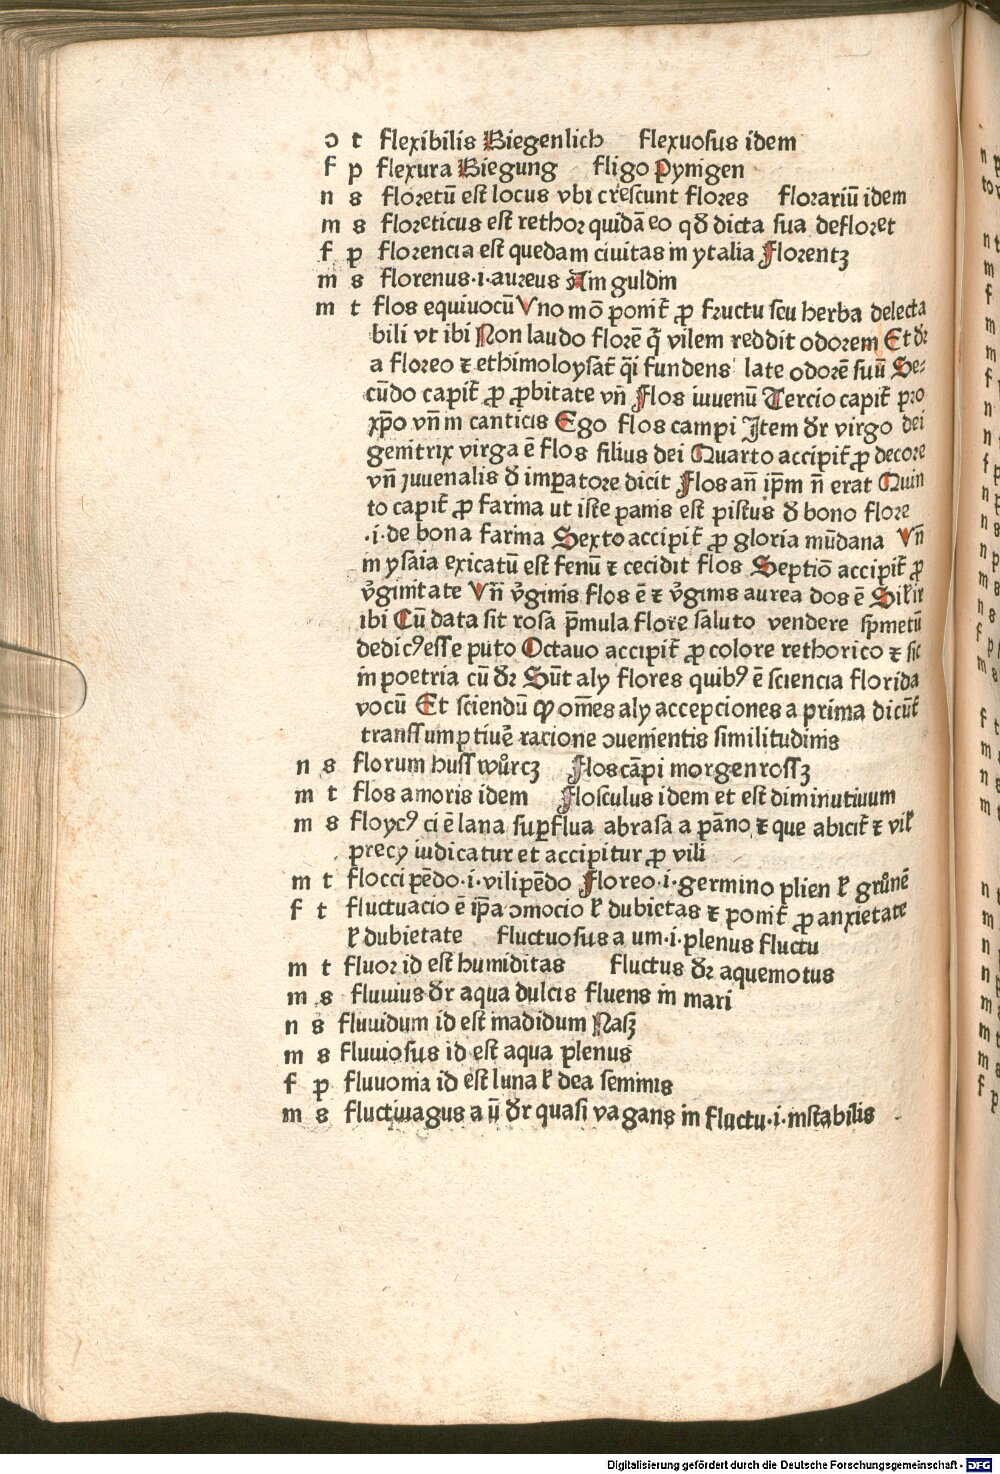 ɔ t flexibilis Biegenlich flexuosus idem
f p flexura Biegung fligo Pynigen
n s floretū est locus vbi crescunt flores florariū idem
m s floreticus est rethor quidā eo qđ dicta sua defloret
f p florencia est quedam ciuitas in ytalia Florentʒ
m s florenus·i·aureus Ain guldin
m t flos equiuocū Vno mō ponit̄ ꝓ fructu seu herba delecta
bili vt ibi Non laudo florē q̄ vilem reddit odorem Et dr̄
a floreo ⁊ ethimoloysat̄ q̄i fundens late odorē suū Se⸗
cūdo capit̄ ꝓ ꝓbitate vn̄ Flos iuuenū Tercio capit̄ pro
xp̄o vn̄ in canticis Ego flos campi Item dr̄ virgo dei
genitrix virga ē flos filius dei Quarto accipit̄ ꝓ decore
vn̄ juuenalis đ imp̲atore dicit Flos an̄ ip̄m n̄ erat Quin
to capit̄ ꝓ farina ut iste panis est pistus đ bono flore
·i·de bona farina Sexto accipit̄ ꝓ gloria mūdana Vn̄
in ysaia exicatū est fenū ⁊ cecidit flos Septīo accipit̄ ꝓ
v̓ginitate Vn̄ v̓ginis flos ē ⁊ v̓ginis aurea dos ē Sil̓ir
ibi Cū data sit rosa p̄mula flore saluto vendere sp̄metū
dedicꝰ esse puto Octauo accipit̄ ꝓ colore rethorico ⁊ sic
in poetria cū dr̄ Sūt aly flores quibꝰ ē sciencia florida
vocū Et sciendū ꝙ om̄es aly accepciones a prima dicūt̄
transsumptiue racione ɔuenientis similitudinis
n s florum huss wůrcʒ Flos cāpi morgenrossʒ
m t flos amoris idem Flosculus idem et est diminutiuum
m s floycꝰ ci ē lana sup̲flua abrasa a pāno ⁊ que abicit̄ ⁊ vil̓
precy iudicatur et accipitur ꝓ vili
m t flocci pēdo·i·vilipēdo Floreo·i·germino plien l̓ grůnē
f t fluctuacio ē ip̄a ɔmocio l̓ dubietas ⁊ ponit̄ ꝓ anxietate
l̓ dubietate fluctuosus a um·i·plenus fluctu
m t fluor id est humiditas fluctus dr̄ aque motus
m s fluuius dr̄ aqua dulcis fluens in mari
n s fluuidum id est madidum Nasʒ
m s fluuiosus id est aqua plenus
f p fluuonia id est luna l̓ dea seminis
m s fluctiuagus a ū dr̄ quasi vagans in fluctu·i·instabilis
Digitalisierung gefördert durch die Deutsche Forschungsgemeinschaft - DFG